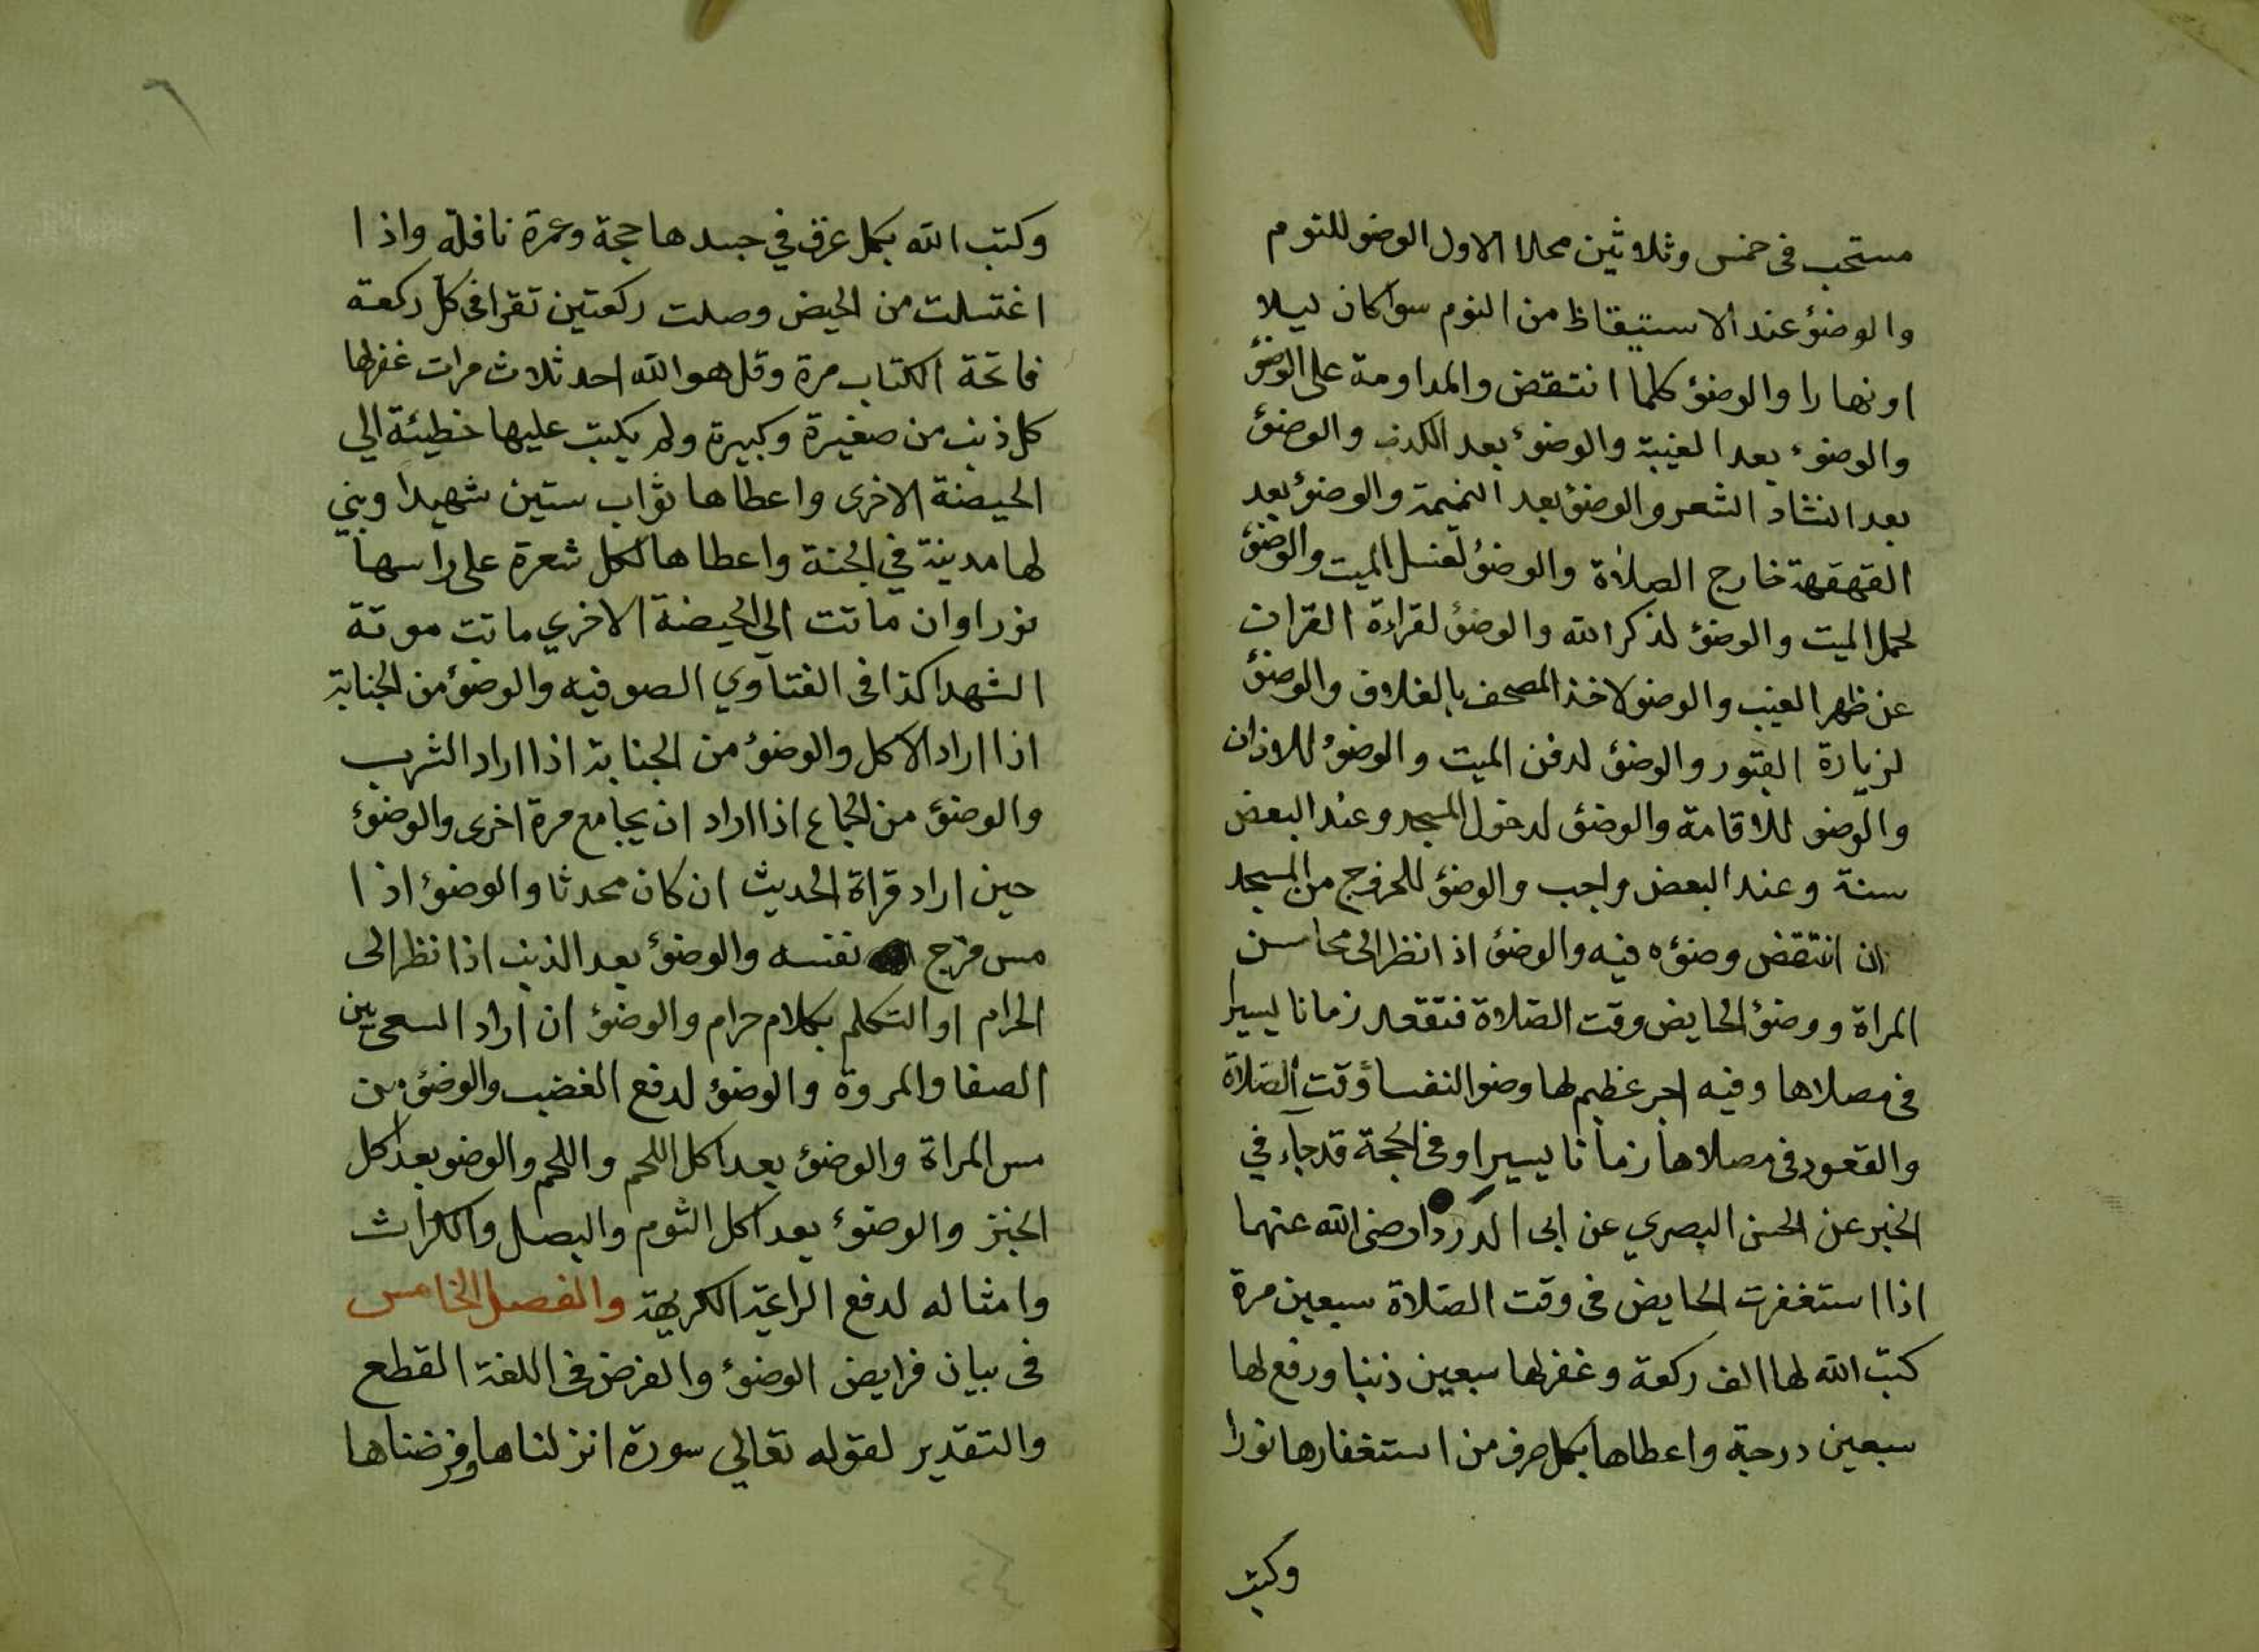 مستحب فى خمس وثلاثين محلا الاول الوضو للنوم
والوضؤ عند الاستيقاظ من النوم سوا كان ليلا
او نهارا والوضؤ كلما انتقض والمداومة على الوضؤ
والوضوء بعد الغيبة والوضوء بعد الكذب والوضؤ
بعد انشاد الشعر والوضؤ بعد النميمة والوضؤ بعد
القهقهة خارج الصلاة والوضؤ لغسل الميت والوضؤ
لحمل الميت والوضؤ لذكر الله والوضؤ لقراءة القران
عن ظهر الغيب والوضو لاخذ المصحف بالغلاف والوضؤ
لزيارة القبور والوضؤ لدفن الميت والوضؤ للاذان
والوضو للاقامة والوضؤ لدخول المسجد وعند البعض
سنة وعند البعض واجب والوضؤ للخروج من المسجد
ان انتقض وضؤه فيه والوضؤ اذا نظر الى محاسن
المراة ووضؤ الحايض وقت الصلاة فتقعد زمانا يسيرا
فى مصلاها وفيه اجر عظيم لها وضو النفسا وقت الصلاة
والقعود فى مصلاها زمانا يسيرا وفى الحجة قد جاء في
الخبر عن الحسن البصري عن ابى الدردا رضى الله عنهما
اذا استغفرت الحايض فى وقت الصلاة سبعين مرة
كتب الله لها الف ركعة وغفر لها سبعين ذنبا ورفع لها
سبعين درجة واعطاها بكل حرف من استغفارها نورا
وكتب
٦
وكتب الله بكل عرق في جسدها حجة وعمرة نافلة واذا
اغتسلت من الحيض وصلت ركعتين تقرا فى كل ركعة
فاتحة الكتاب مرة وقل هو الله احد ثلاث مرات غفر لها
كل ذنب من صغيرة وكبيرة ولم يكتب عليها خطيئة الي
الحيضة الاخرى واعطاها ثواب ستين شهيدا وبني
لها مدينة في الجنة واعطاها لكل شعرة على راسها
نورا وان ماتت الي الحيضة الاخري ماتت موتة
الشهدا كذا فى الفتاوي الصوفيه والوضؤ من الجنابة
اذا اراد الاكل والوضؤ من الجنابة اذا اراد الشرب
والوضؤ من الجماع اذا اراد ان يجامع مرة اخرى والوضوء
حين اراد قراة الحديث ان كان محدثا والوضؤ اذا
مس فرج نفسه والوضؤ بعد الذنب اذا نظر الى
الحرام او التكلم بكلام حرام والوضؤ ان اراد السعى بين
الصفا والمروة والوضؤ لدفع الغضب والوضؤ من
مس المراة والوضؤ بعد اكل اللحم واللحم والوضو بعد اكل
الخبز والوضوء بعد اكل الثوم والبصل والكراث
وامثاله لدفع الراعية الكريهة والفصل الخامس
فى بيان فرايض الوضوء والفرض فى اللغة القطع
والتقدير لقوله تعالي سورة انزلناها وفرضناها